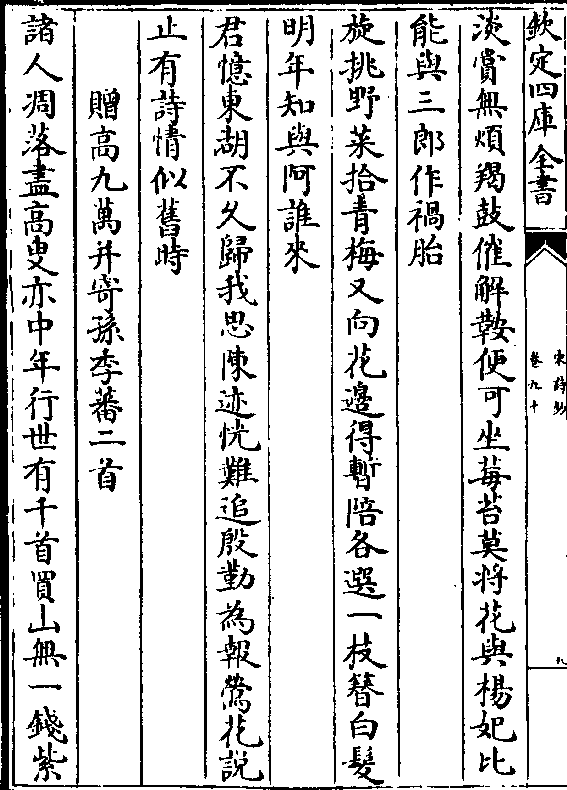 欽定四庫全書
宋詩鈔
卷九十
九
淡賞無煩羯鼓催解鞍便可坐莓苔莫將花與楊妃比
能與三郎作禍胎
旋挑野菜拾青梅又向花邊得暫陪各選一枝簪白髮
明年知與阿誰來
君憶東湖不久歸我思陳迹恍難追殷勤為報鶯花說
止有詩情似舊時
贈高九萬并寄孫季蕃二首
諸人凋落盡高叟亦中年行世有千首買山無一錢紫